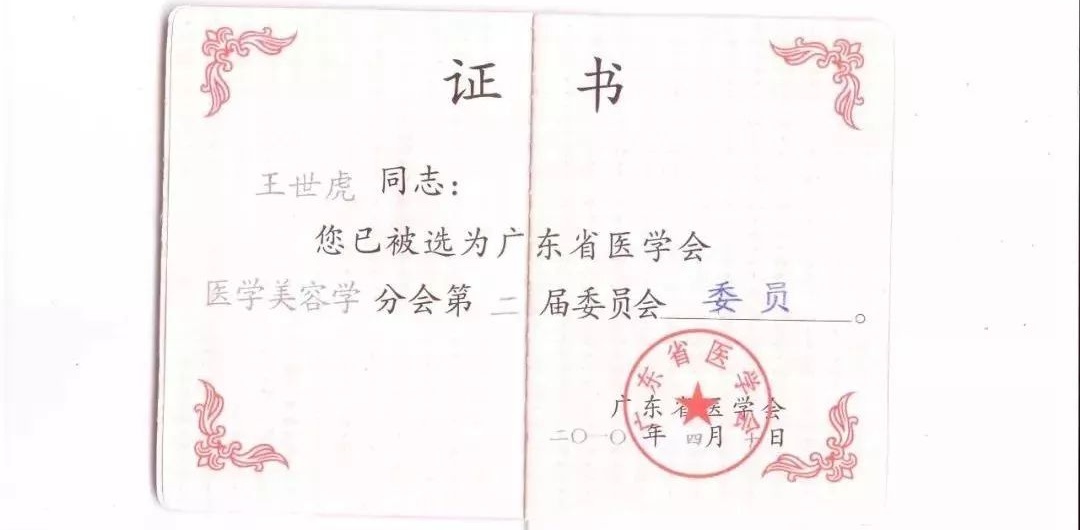 证 书
王世虎 同志：
您已被选为广东省医学会
医学美容学 分会第 二 届委员会 委员。
广东省医学会
广东省医学会
二〇一〇年 四月 十日